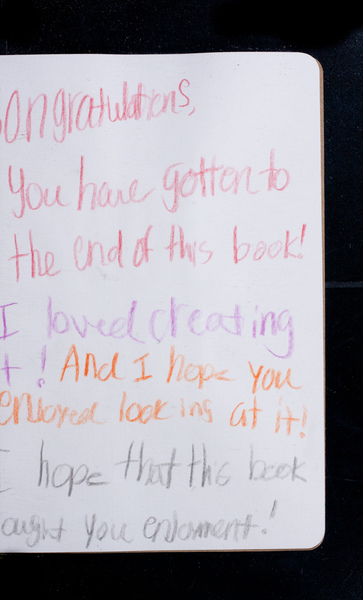 ongratulations,
You have gotten to
the end of this book!
I loved creating
t! And I hope you
enjoyed looking at it!
I hope that this book
ought you enjoyment!